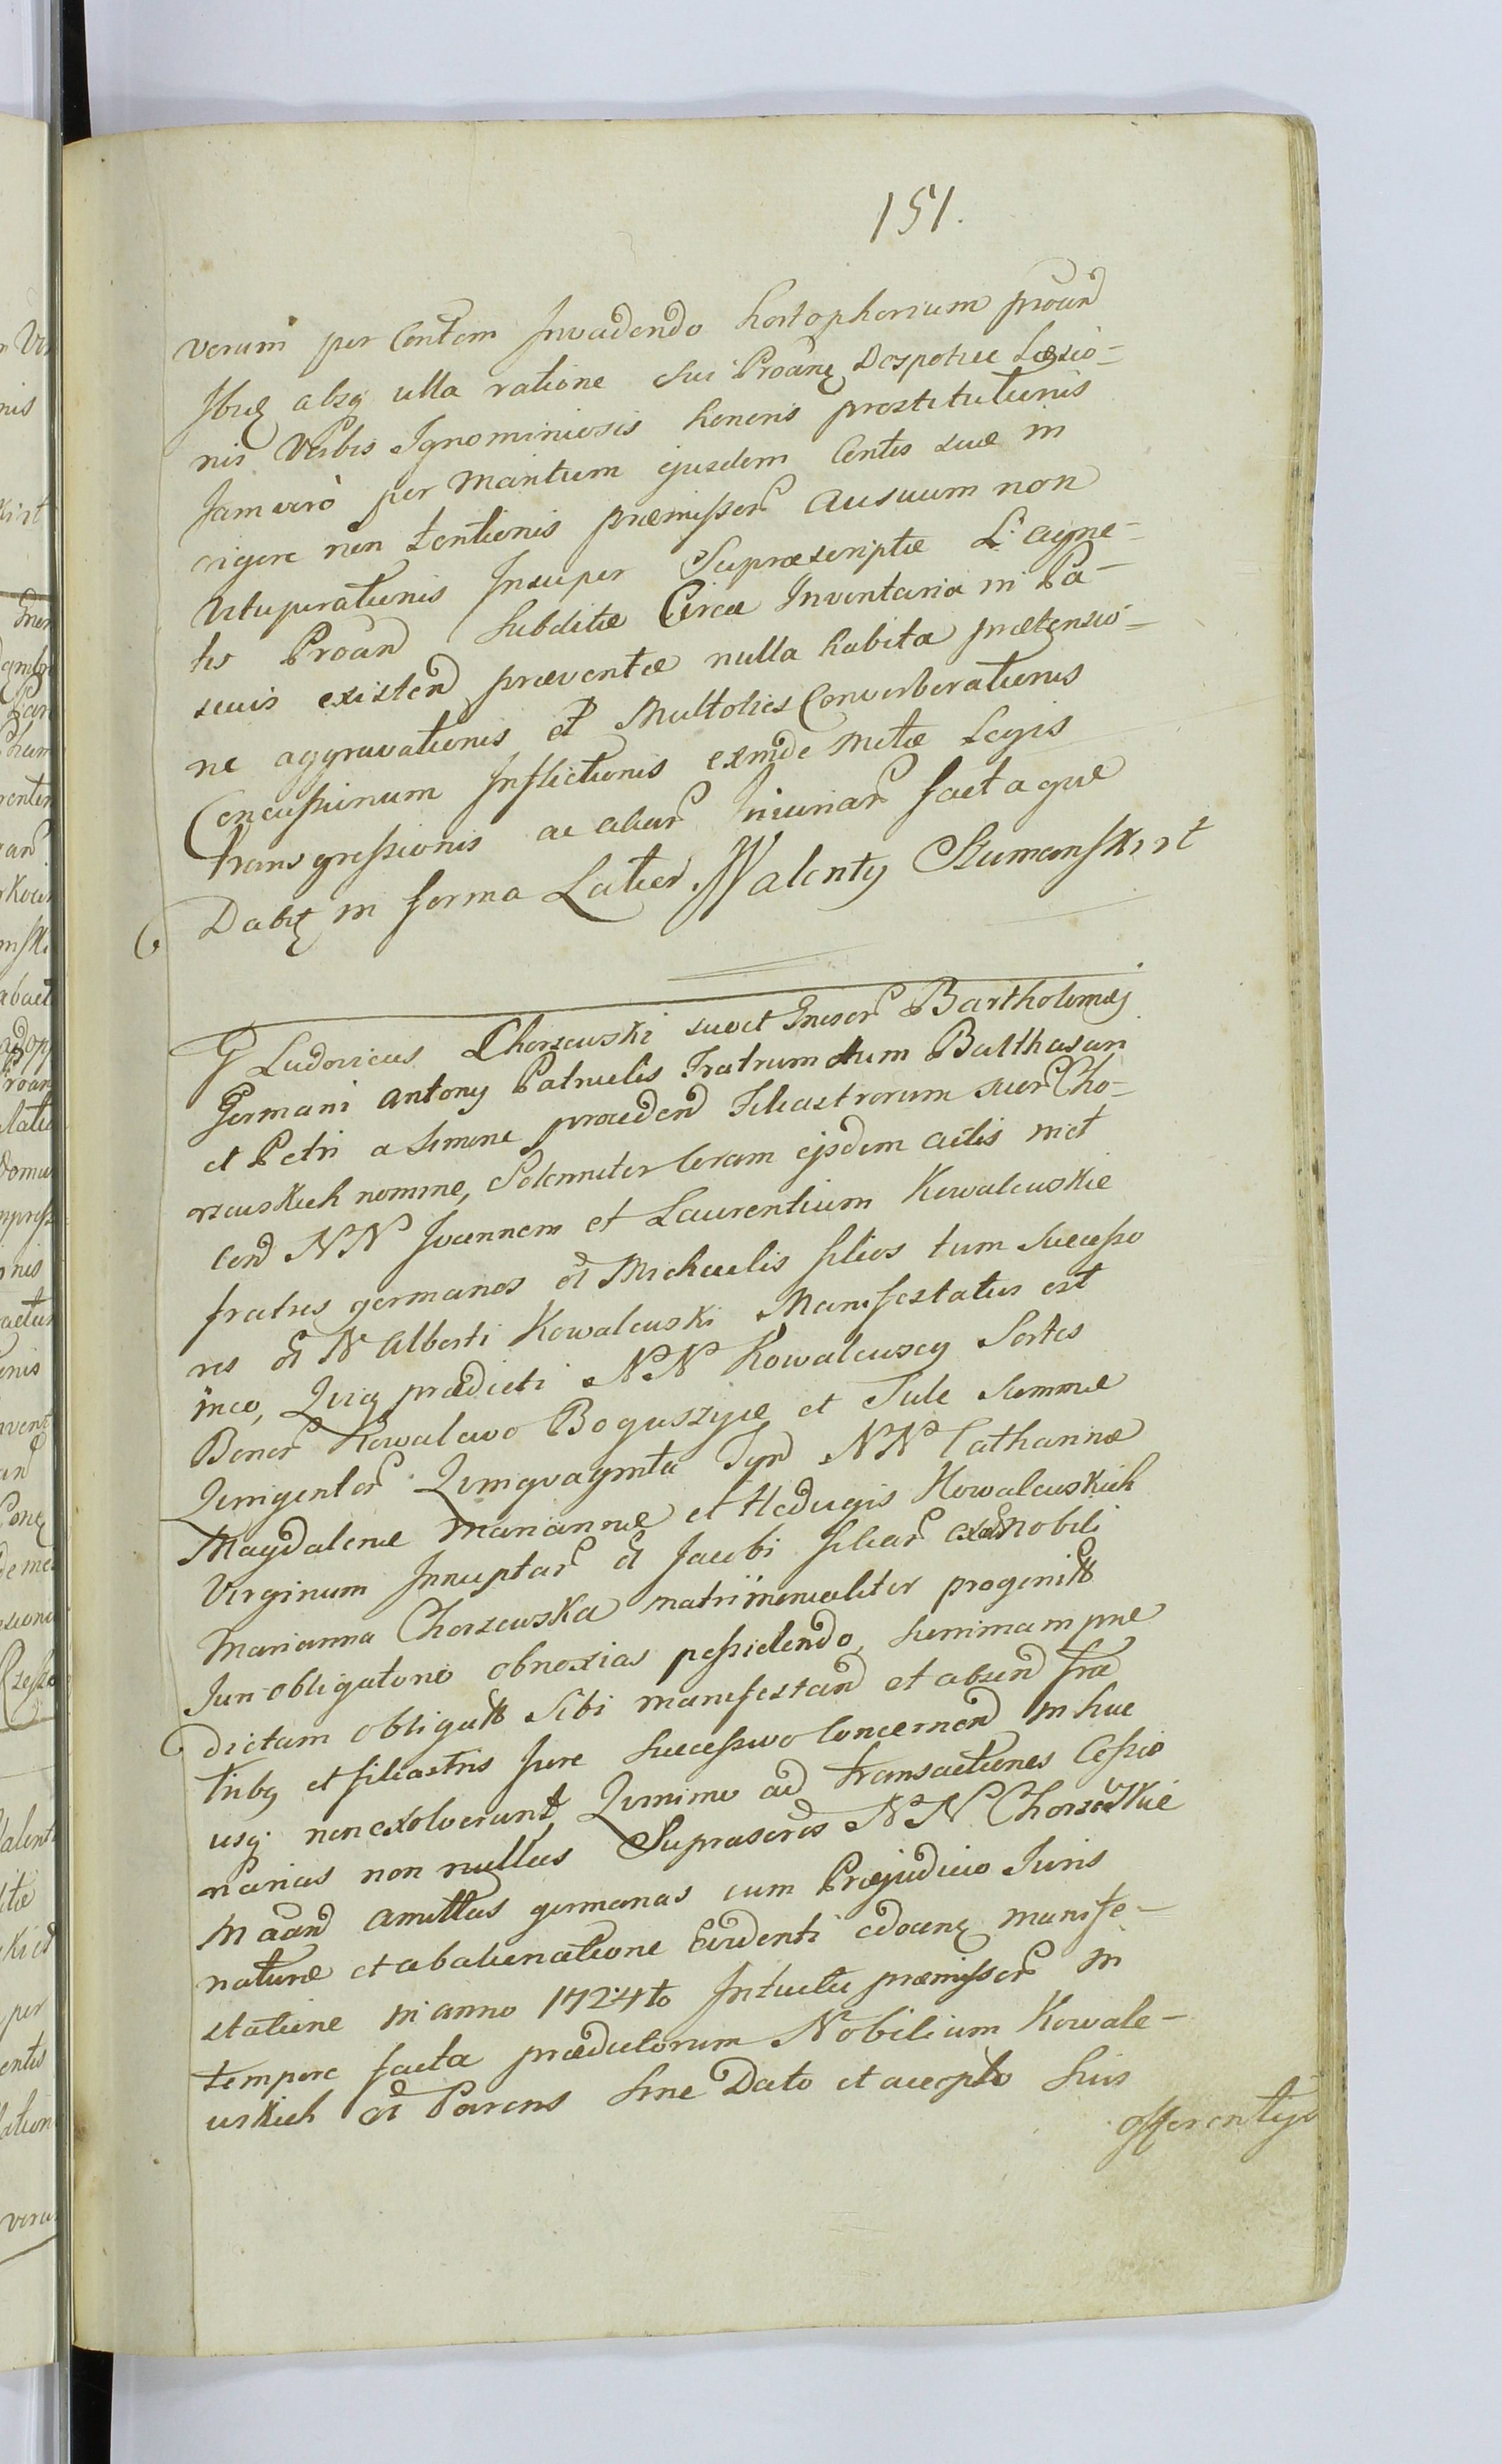 151.
verum per Contem Invadendo hortophorium proand
Ibiq absq ulla ratione sui Proanę Despotice Læsio-
nis Verbis Ignominiosis honoris prostitutionis
Jam vero per Maritum ejusdem Contis suæ in
rigore non tentionis præmissor ausuum non
Vituperationis Insuper Supræscriptæ L. Agne-
tis Proand subditæ Circa Inventaria in Pa-
scuis existend præventæ nulla habita prætensio-
ne aggravationis et Multoties Converberationis
Concussionum Inflictionis exinde Metæ Legis
transgressionis ac aliar Iniuriar factaque
Dabit in forma Latior. Walenty Szumanski rt
G Ludovicus Chorzewski suo et Inscr Bartholomæj
Germani Antony Patruelis Fratrum tum Balthasari
et Petri a Simone procedend Filiastrorum suor Cho-
rzewskich nomine, Solenniter Coram ejsdem actis nict
Cond NN Joannem et Laurentium Kowalewskie
fratres germanos ol Michaelis filios tum Successo
res ol N Alberti Kowalewski Manifestatus est
in eo, Quia prædicti NN Kowalewscy Sortes
Bonor Kowalewo Boguszyce et Tule Summæ
Quingentor Quinquaginta Tynf NN Catharinæ
Magdalenæ Mariannæ et Hedvigis Kowalewskich
Virginum Innuptar ol Jacobi filiar ex Nobili
Marianna Chorzewska matrimonialiter progenitar
Juri obligatorio obnoxias possidendo, summam præ
dictam obligator Sibi manifestand et absend fra
tribq et filiastris Jure Successivo Concernend in huc
usq non exolverunt, Quinimo ad transactiones Cessio
narias non nullas Suprascrtas NN Chorzewskie
M aand amittas germanas cum Præjudicio Juris
naturæ et abalienatione Evidenti edocenę manife-
statione in anno 1724to Intuitu præmissor in
tempore facta prædictorum Nobilium Kowale-
wskich ol Parens sine Dato et accepto suis
offerentijs